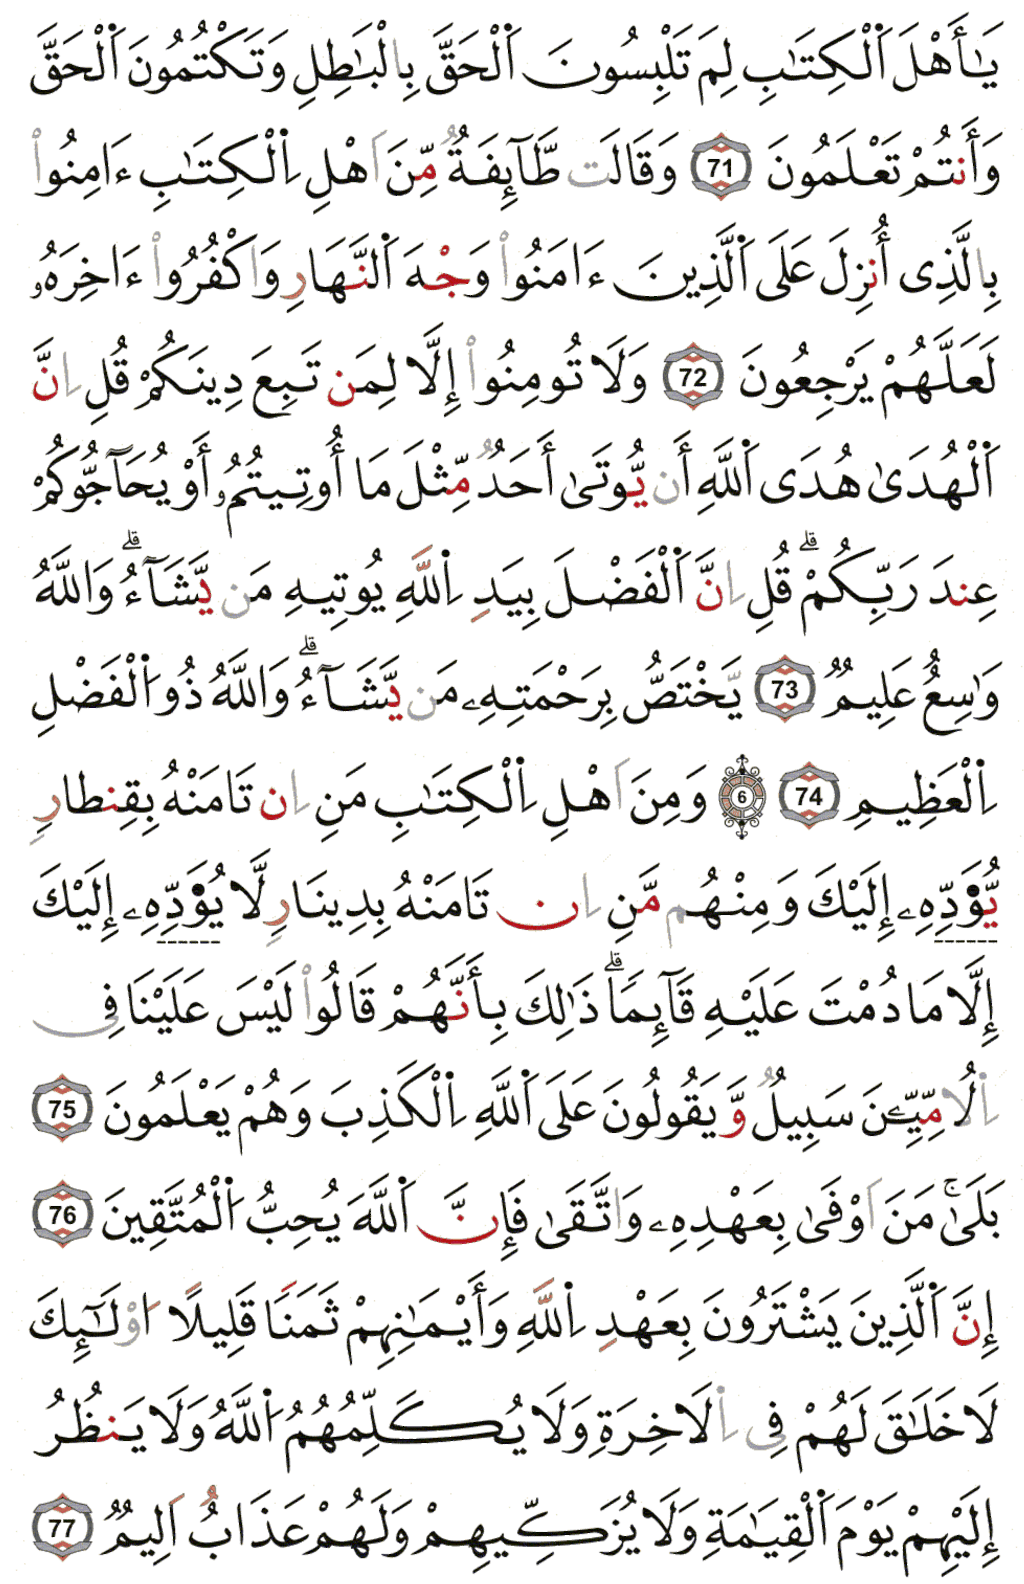 يَٰٓأَهْلَ اَ۬لْكِتَٰبِ لِمَ تَلْبِسُونَ اَ۬لْحَقَّ بِالْبَٰطِلِ وَتَكْتُمُونَ اَ۬لْحَقَّ
وَأَنتُمْ تَعْلَمُونَ 71 وَقَالَت طَّآئِفَةٌ مِّنَ اَهْلِ اِ۬لْكِتَٰبِ ءَامِنُواْ
بِالَّذِى أُنزِلَ عَلَى اَ۬لَّذِينَ ءَامَنُواْ وَجْهَ اَ۬لنَّهَارِ وَاكْفُرُواْ ءَاخِرَهُۥ
لَعَلَّهُمْ يَرْجِعُونَ 72 وَلَا تُومِنُواْ إِلَّا لِمَن تَبِعَ دِينَكُمْ قُلِ اِنَّ
اَ۬لْهُدَىٰ هُدَى اَ۬للَّهِ أَن يُّوتَىٰ أَحَدٌ مِّثْلَ مَا أُوتِيتُمُۥ أَوْ يُحَآجُّوكُمْ
عِندَ رَبِّكُمْ ۖ قُلِ اِنَّ اَ۬لْفَضْلَ بِيَدِ اِ۬للَّهِ يُوتِيهِ مَن يَّشَآءُ ۖ وَاللَّهُ
وَٰسِعٌ عَلِيمٌ 73 يَّخْتَصُّ بِرَحْمَتِهِۦ مَن يَّشَآءُ ۖ وَاللَّهُ ذُو اَ۬لْفَضْلِ
اِ۬لْعَظِيمِ 74 6 وَمِنَ اَهْلِ اِ۬لْكِتَٰبِ مَنِ اِن تَامَنْهُ بِقِنطَارِ
يُّؤَدِّهِۦ إِلَيْكَ وَمِنْهُم مَّنِ اِن تَامَنْهُ بِدِينَارِ لَّا يُؤَدِّهِۦ إِلَيْكَ
إِلَّا مَا دُمْتَ عَلَيْهِ قَآئِمًا ۖ ذَٰلِكَ بِأَنَّهُمْ قَالُواْ لَيْسَ عَلَيْنَا فِى
اِ۬لُامِّيِّـۧنَ سَبِيلٌ وَّيَقُولُونَ عَلَى اَ۬للَّهِ اِ۬لْكَذِبَ وَهُمْ يَعْلَمُونَ 75
بَلَىٰ ۚ مَنَ اَوْفَىٰ بِعَهْدِهِۦ وَاتَّقَىٰ فَإِنَّ اَ۬للَّهَ يُحِبُّ اُ۬لْمُتَّقِينَ 76
إِنَّ اَ۬لَّذِينَ يَشْتَرُونَ بِعَهْدِ اِ۬للَّهِ وَأَيْمَٰنِهِمْ ثَمَنًا قَلِيلًا اُوْلَٰٓئِكَ
لَا خَلَٰقَ لَهُمْ فِى اِ۬لَاخِرَةِ وَلَا يُكَلِّمُهُمُ اُ۬للَّهُ وَلَا يَنظُرُ
إِلَيْهِمْ يَوْمَ اَ۬لْقِيَٰمَةِ وَلَا يُزَكِّيهِمْ وَلَهُمْ عَذَابٌ اَلِيمٌ 77